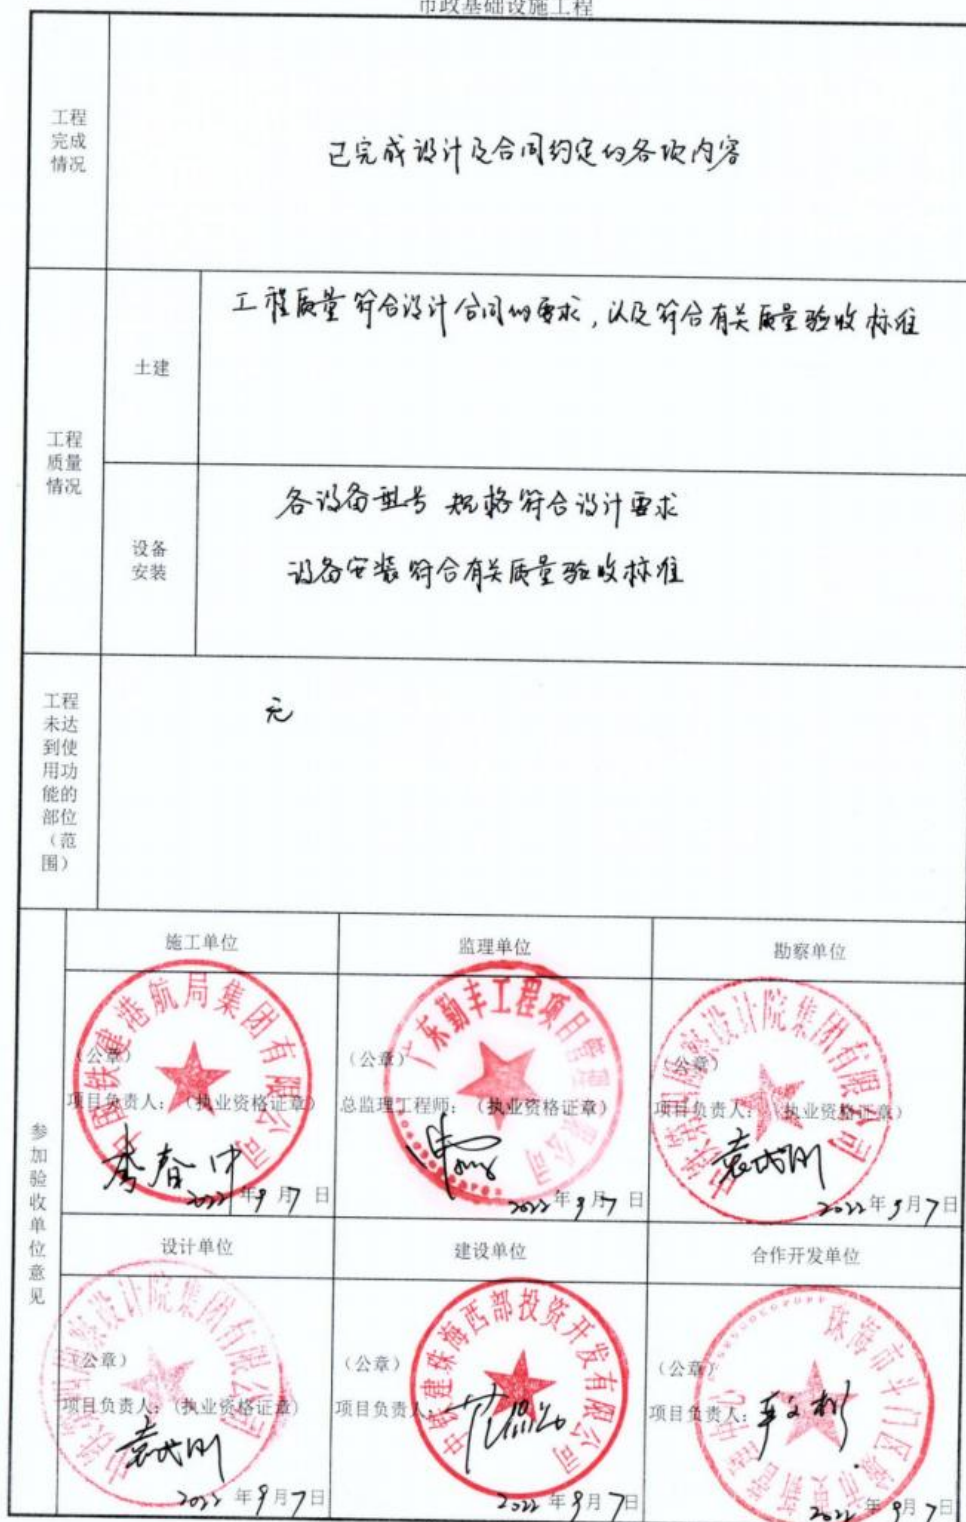 市政基础设施工程
工程
完成
情况
已完成设计及合同约定的各项内容
工程
质量
情况
土建
工程质量符合设计合同的要求,以及符合有关质量验收标准
设备
安装
各设备型号 规格符合设计要求
设备安装符合有关质量验收标准
工程
未达
到使
用功
能的
部位
(范
围)
无
参加验收单位意见
施工单位
监理单位
勘察单位
中国铁建港航局集团有限公司
(公章)
项目负责人:(执业资格证章)
李春中
2022年9月7日
广东勤丰工程项目管理有限公司
(公章)
总监理工程师:(执业资格证章)
2022年9月7日
勘察设计院集团有限公司
(公章)
项目负责人:(执业资格证章)
2022年9月7日
设计单位
建设单位
合作开发单位
勘察设计院集团有限公司
(公章)
项目负责人:(执业资格证章)
2022年9月7日
中铁建珠海西部投资开发有限公司
(公章)
项目负责人:
2022年9月7日
珠海市斗门区城市更新管理中心
(公章)
项目负责人:
2022年9月7日